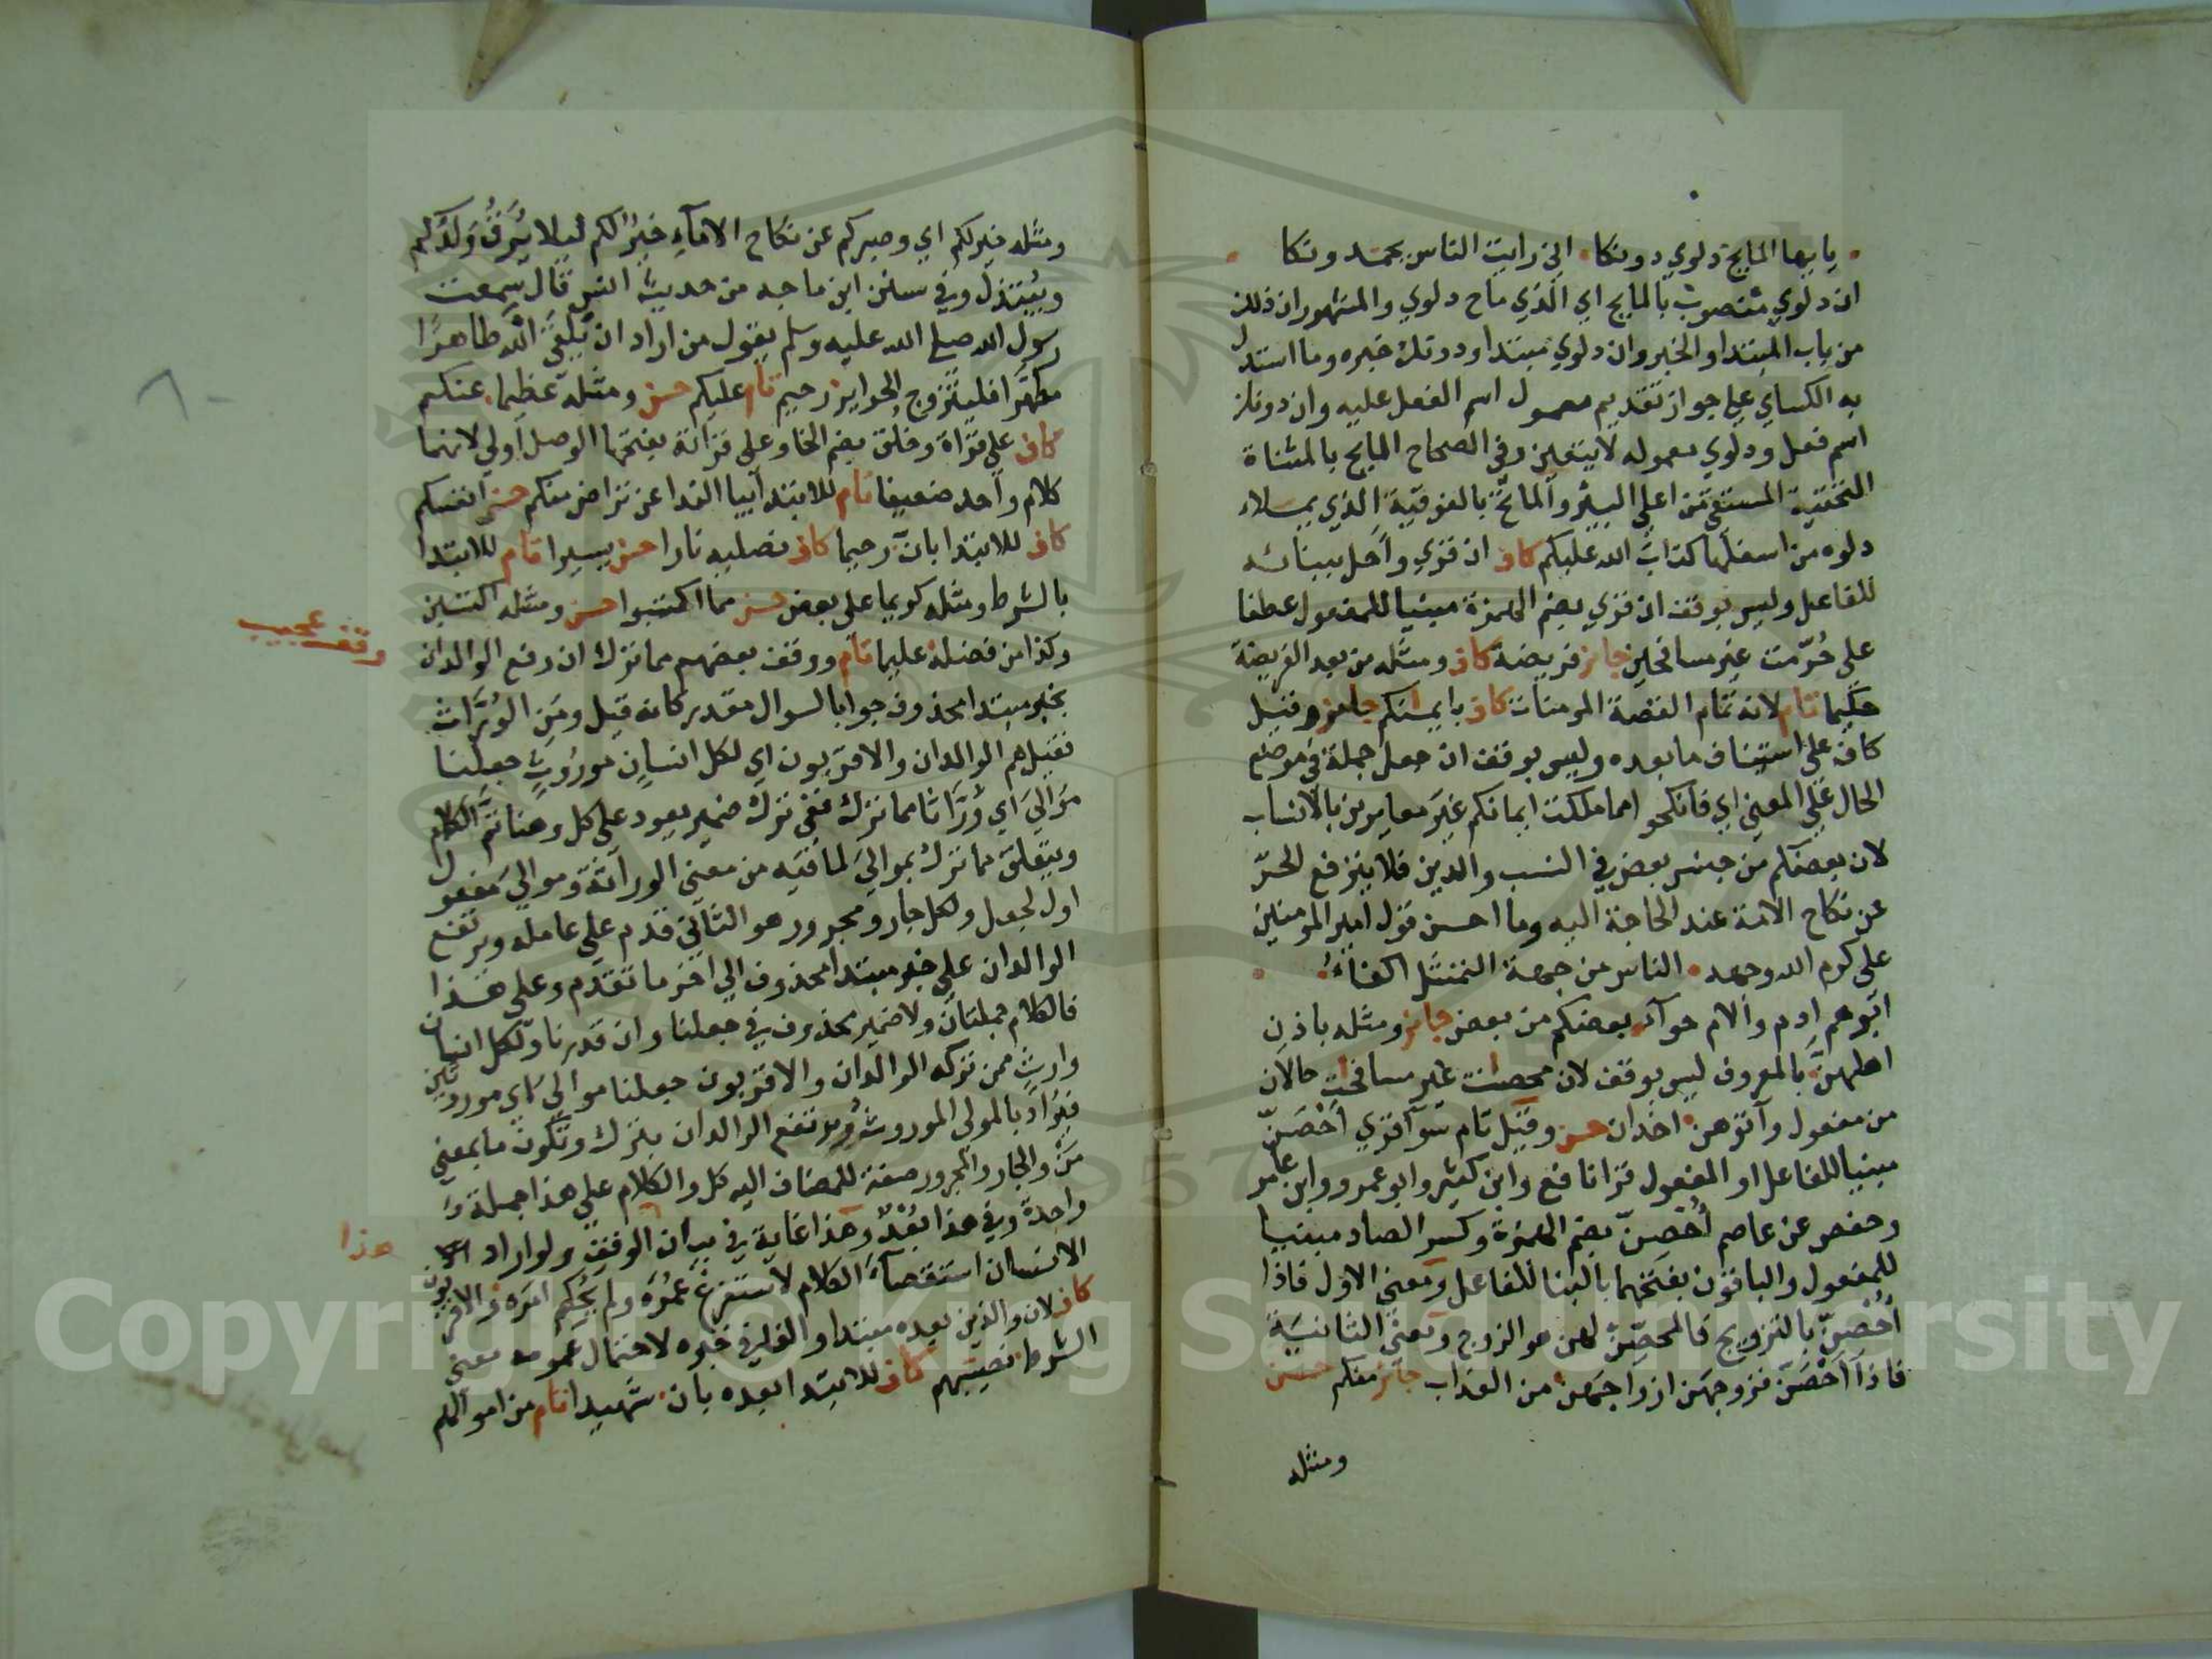 يايها المايح دلوي دونكا اني رايت الناس يحمدونكا
ان دلوي منصوب بالمايح اي الذي ماح دلوي والمشهوران ذلك
من باب المبتدا والخبر وان دلوي مبتدا ودونك خبره وما استدل
به الكساي علي جواز تقديم معمول اسم الفعل عليه وان دونك
اسم فعل ودلوي معموله لا يتعين وفي الصحاح المايح بالمثناة
التحتية المستقي من اعلي البئر والماتح بالفوقية الذي يملاء
دلوه من اسفلها كتاب الله عليكم كاف ان قري واحل ببنائه
للفاعل وليس بوقف ان قري بضم الهمزة مبنيا للمفعول عطفا
علي حُرّمت غير مسافحين جائز فريضة كاف ومثله من بعد الفريضة
حكيما تام لانه تمام القصة المومنات كاف بايمنكم جايز وقيل
كاف علي استئناف ما بعده وليس بوقف ان جعل جملة في موضع
الحال علي المعني اي فانكحوا مما ملكت ايمانكم غير معايرين بالانساب
لان بعضكم من جنس بعض في النسب والدين فلا يترفع الحرّ
عن نكاح الامة عند الحاجة اليه وما احسن قول امير المومنين
علي كرم الله وجهه الناس من جهة التمثل اكفاءُ
ابوهم ادم والام حوآء بعضكم من بعض جايز ومثله باذن
اهلهنّ بالمعروف ليس بوقف لان محصنت غير مسافحت حالان
من مفعول وآتوهن اخدان حسن وقيل تام سوآ قري اَحْصَنّ
مبنيا للفاعل او المفعول قرا نافع وابن كثير وابو عمرو وابن عامر
وحفص عن عاصم اُحْصِنّ بضم الهمزة وكسر الصاد مبنيا
للمفعول والباقون بفتحهما بالبنا للفاعل ومعني الاول فاذا
اُحْصِنّ بالتزويج فالمحصِّن لهن هو الزوج ومعني الثانية
فاذا اَحْصَنّ فزوجهن ازواجهن من العذاب جائز منكم حسن
ومثله
ومثله خير لكم اي وصبركم عن نكاح الامآء خير لكم ليلا يُرَقُّ وَلَدُكم
ويُبْتذل وفي سنن ابن ماجه من حديث انس قال سمعت
رسول الله صلي الله عليه وسلم يقول من اراد ان يلقي الله طاهرًا
مطهّرا فليتزوج الحراير رحيم تام عليكم حسن ومثله عظيما عنكم
كاف علي قراة وخلق بضم الخا وعلي قراته بفتحها الوصل اولي لانهما
كلام واحد ضعيفا تام للابتدا بيا الندا عن تراض منكم حسن انفسكم
كاف للابتدا بانّ رحيما كاف نصليه نارا حسن يسيرا تام للابتدا
بالشرط ومثله كريما علي بعض حسن مما اكتسبوا حسن ومثله اكتسبن
وكذا من فضله عليما تام ووقف بعضهم مما ترك ان رفع الوالدان
وقف عجيب
بخبر مبتدا محذوف جوابا لسوال مقدر كانه قيل ومَن الوُرّاث
فقيل هم الوالدان والاقربون اي لكل انسان موروث جعلنا
مَوالِيَ اي وُرّاثا مما ترك ففي ترك ضمير يعود علي كل وهنا تمّ الكلام
ويتعلق مما ترك بمواليَ لما فيه من معني الوراثة وموالي مفعول
اول لجعل ولكل جار ومجرور هو الثاني قدم علي عامله ويرتفع
الوالدان علي خبر مبتدا محذوف الي اخر ما تقدم وعلي هذا
فالكلام جملتان ولا ضمير محذوف في جعلنا وان قدرنا ولكل انسان
وارث ممن تركه الوالدان والاقربون جعلنا موالي اي موروثين
فيُرادُ بالمولي الموروث ويرتفع الوالدان بترك وتكون ما بمعني
مَن والجار والمجرور صفة للمضاف اليه كل والكلام علي هذا جملة
واحدة وفي هذا بُعْدٌ وهذا غاية في بيان الوقف ولو اراد
هذا
الانسان استقصآء الكلام لاستفرغ عُمُرَه ولم يُحْكِم امَره والاقربون
كاف لان والذين بعده مبتدا والفا في خبره لاحتمال عمومه معني
الشرط نصيبهم كاف للابتدا بعده بان شهيدا تام من اموالهم
Copyright © King Saud University
1957